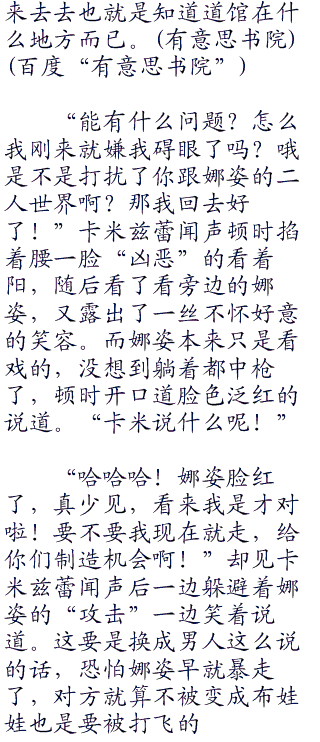 来去去也就是知道道馆在什
么地方而已。(有意思书院)
(百度“有意思书院”)
“能有什么问题？怎么
我刚来就嫌我碍眼了吗？哦
是不是打扰了你跟娜姿的二
人世界啊？那我回去好
了！”卡米兹蕾闻声顿时掐
着腰一脸“凶恶”的看着
阳，随后看了看旁边的娜
姿，又露出了一丝不怀好意
的笑容。而娜姿本来只是看
戏的，没想到躺着都中枪
了，顿时开口道脸色泛红的
说道。“卡米说什么呢！”
“哈哈哈！娜姿脸红
了，真少见，看来我是才对
啦！要不要我现在就走，给
你们制造机会啊！”却见卡
米兹蕾闻声后一边躲避着娜
姿的“攻击”一边笑着说
道。这要是换成男人这么说
的话，恐怕娜姿早就暴走
了，对方就算不被变成布娃
娃也是要被打飞的